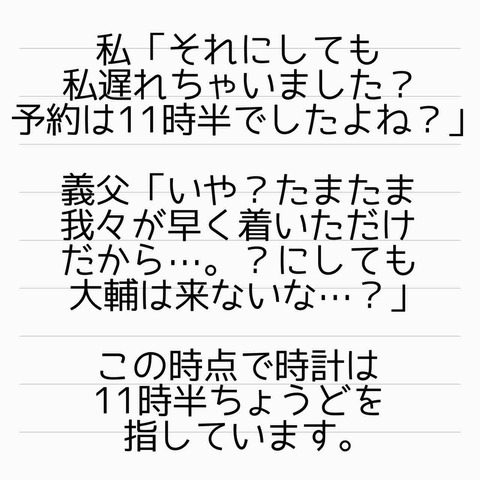 私「それにしても
私遅れちゃいました？
予約は11時半でしたよね？」
義父「いや？たまたま
我々が早く着いただけ
だから…。？にしても
大輔は来ないな…？」
この時点で時計は
11時半ちょうどを
指しています。